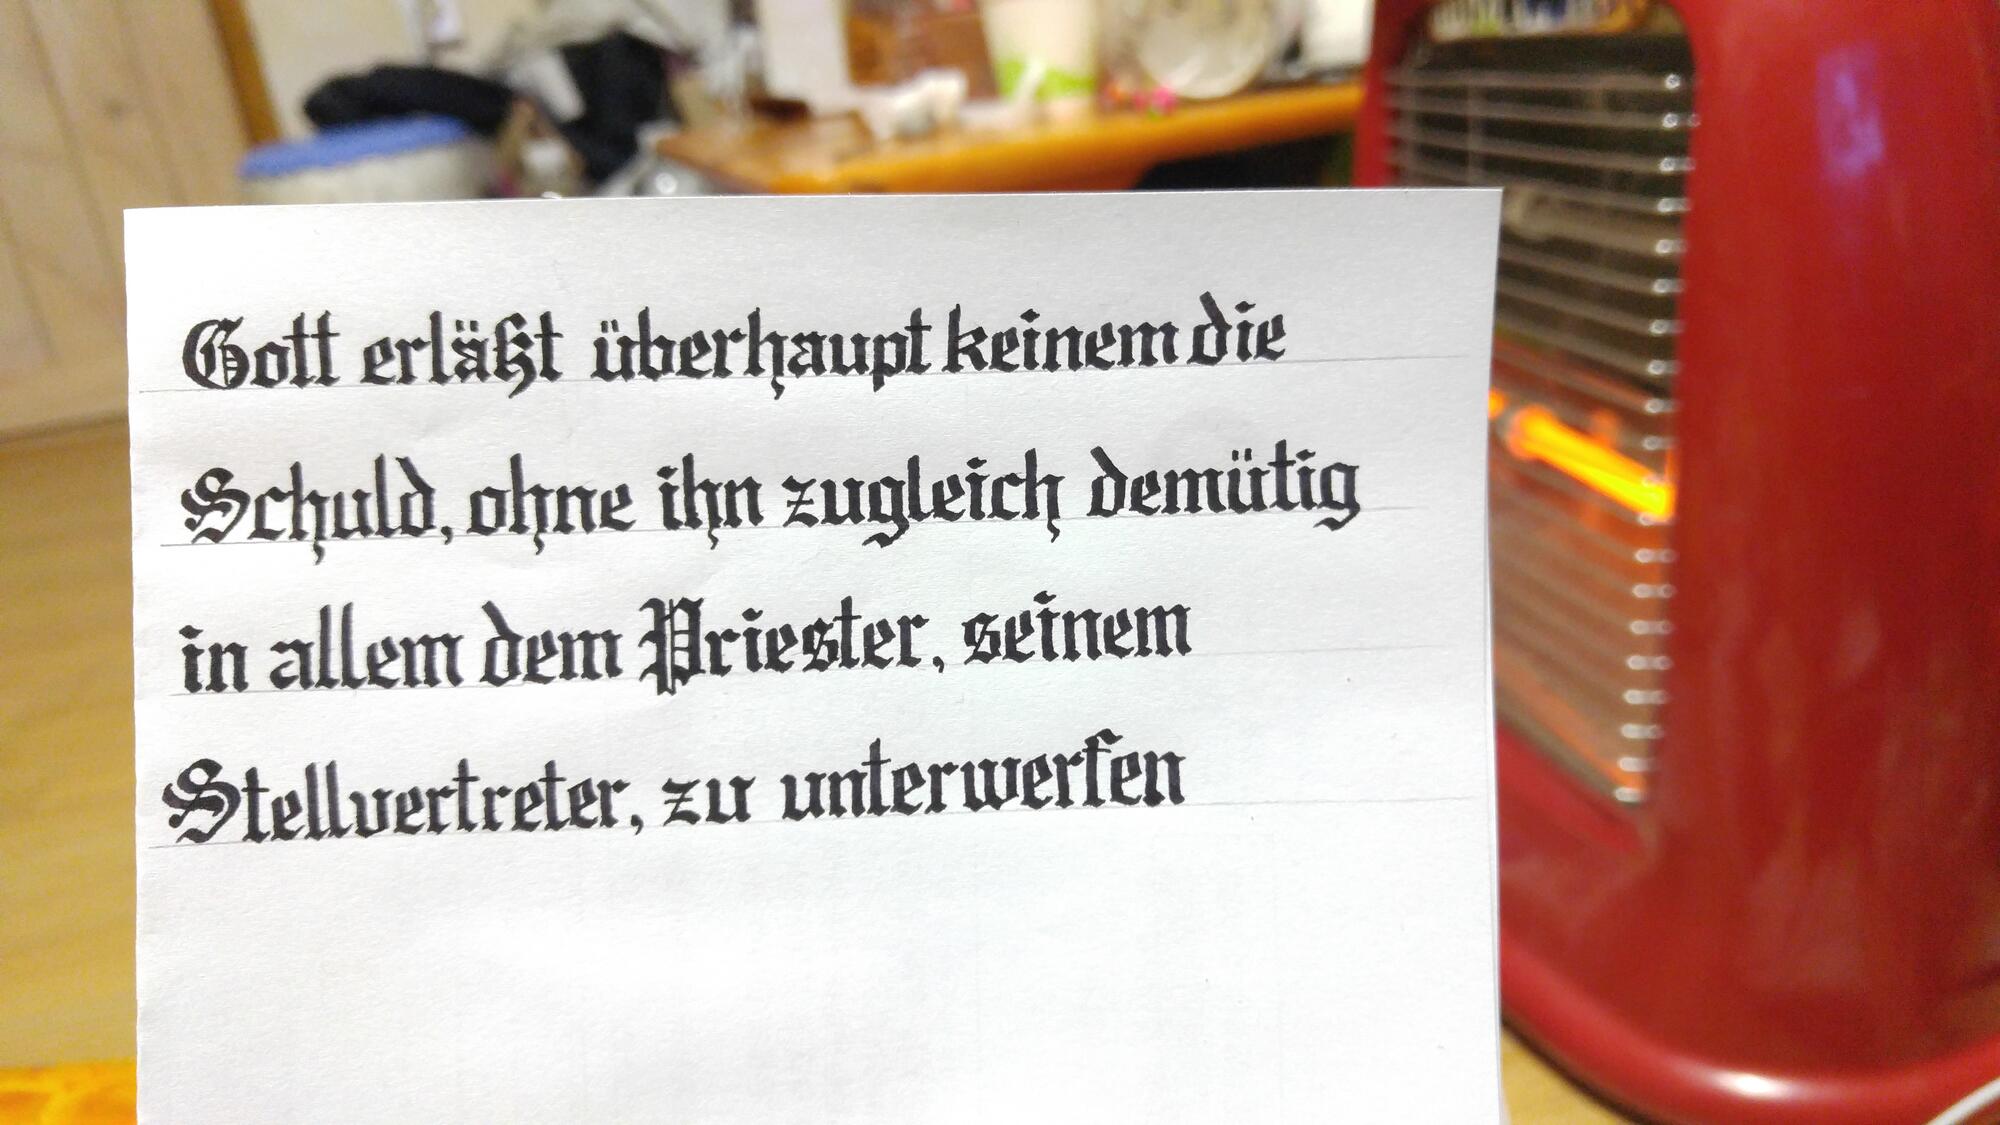 Gott erläßt überhaupt keinem die
Schuld, ohne ihn zugleich demütig
in allem dem Priester, seinem
Stellvertreter, zu unterwerfen